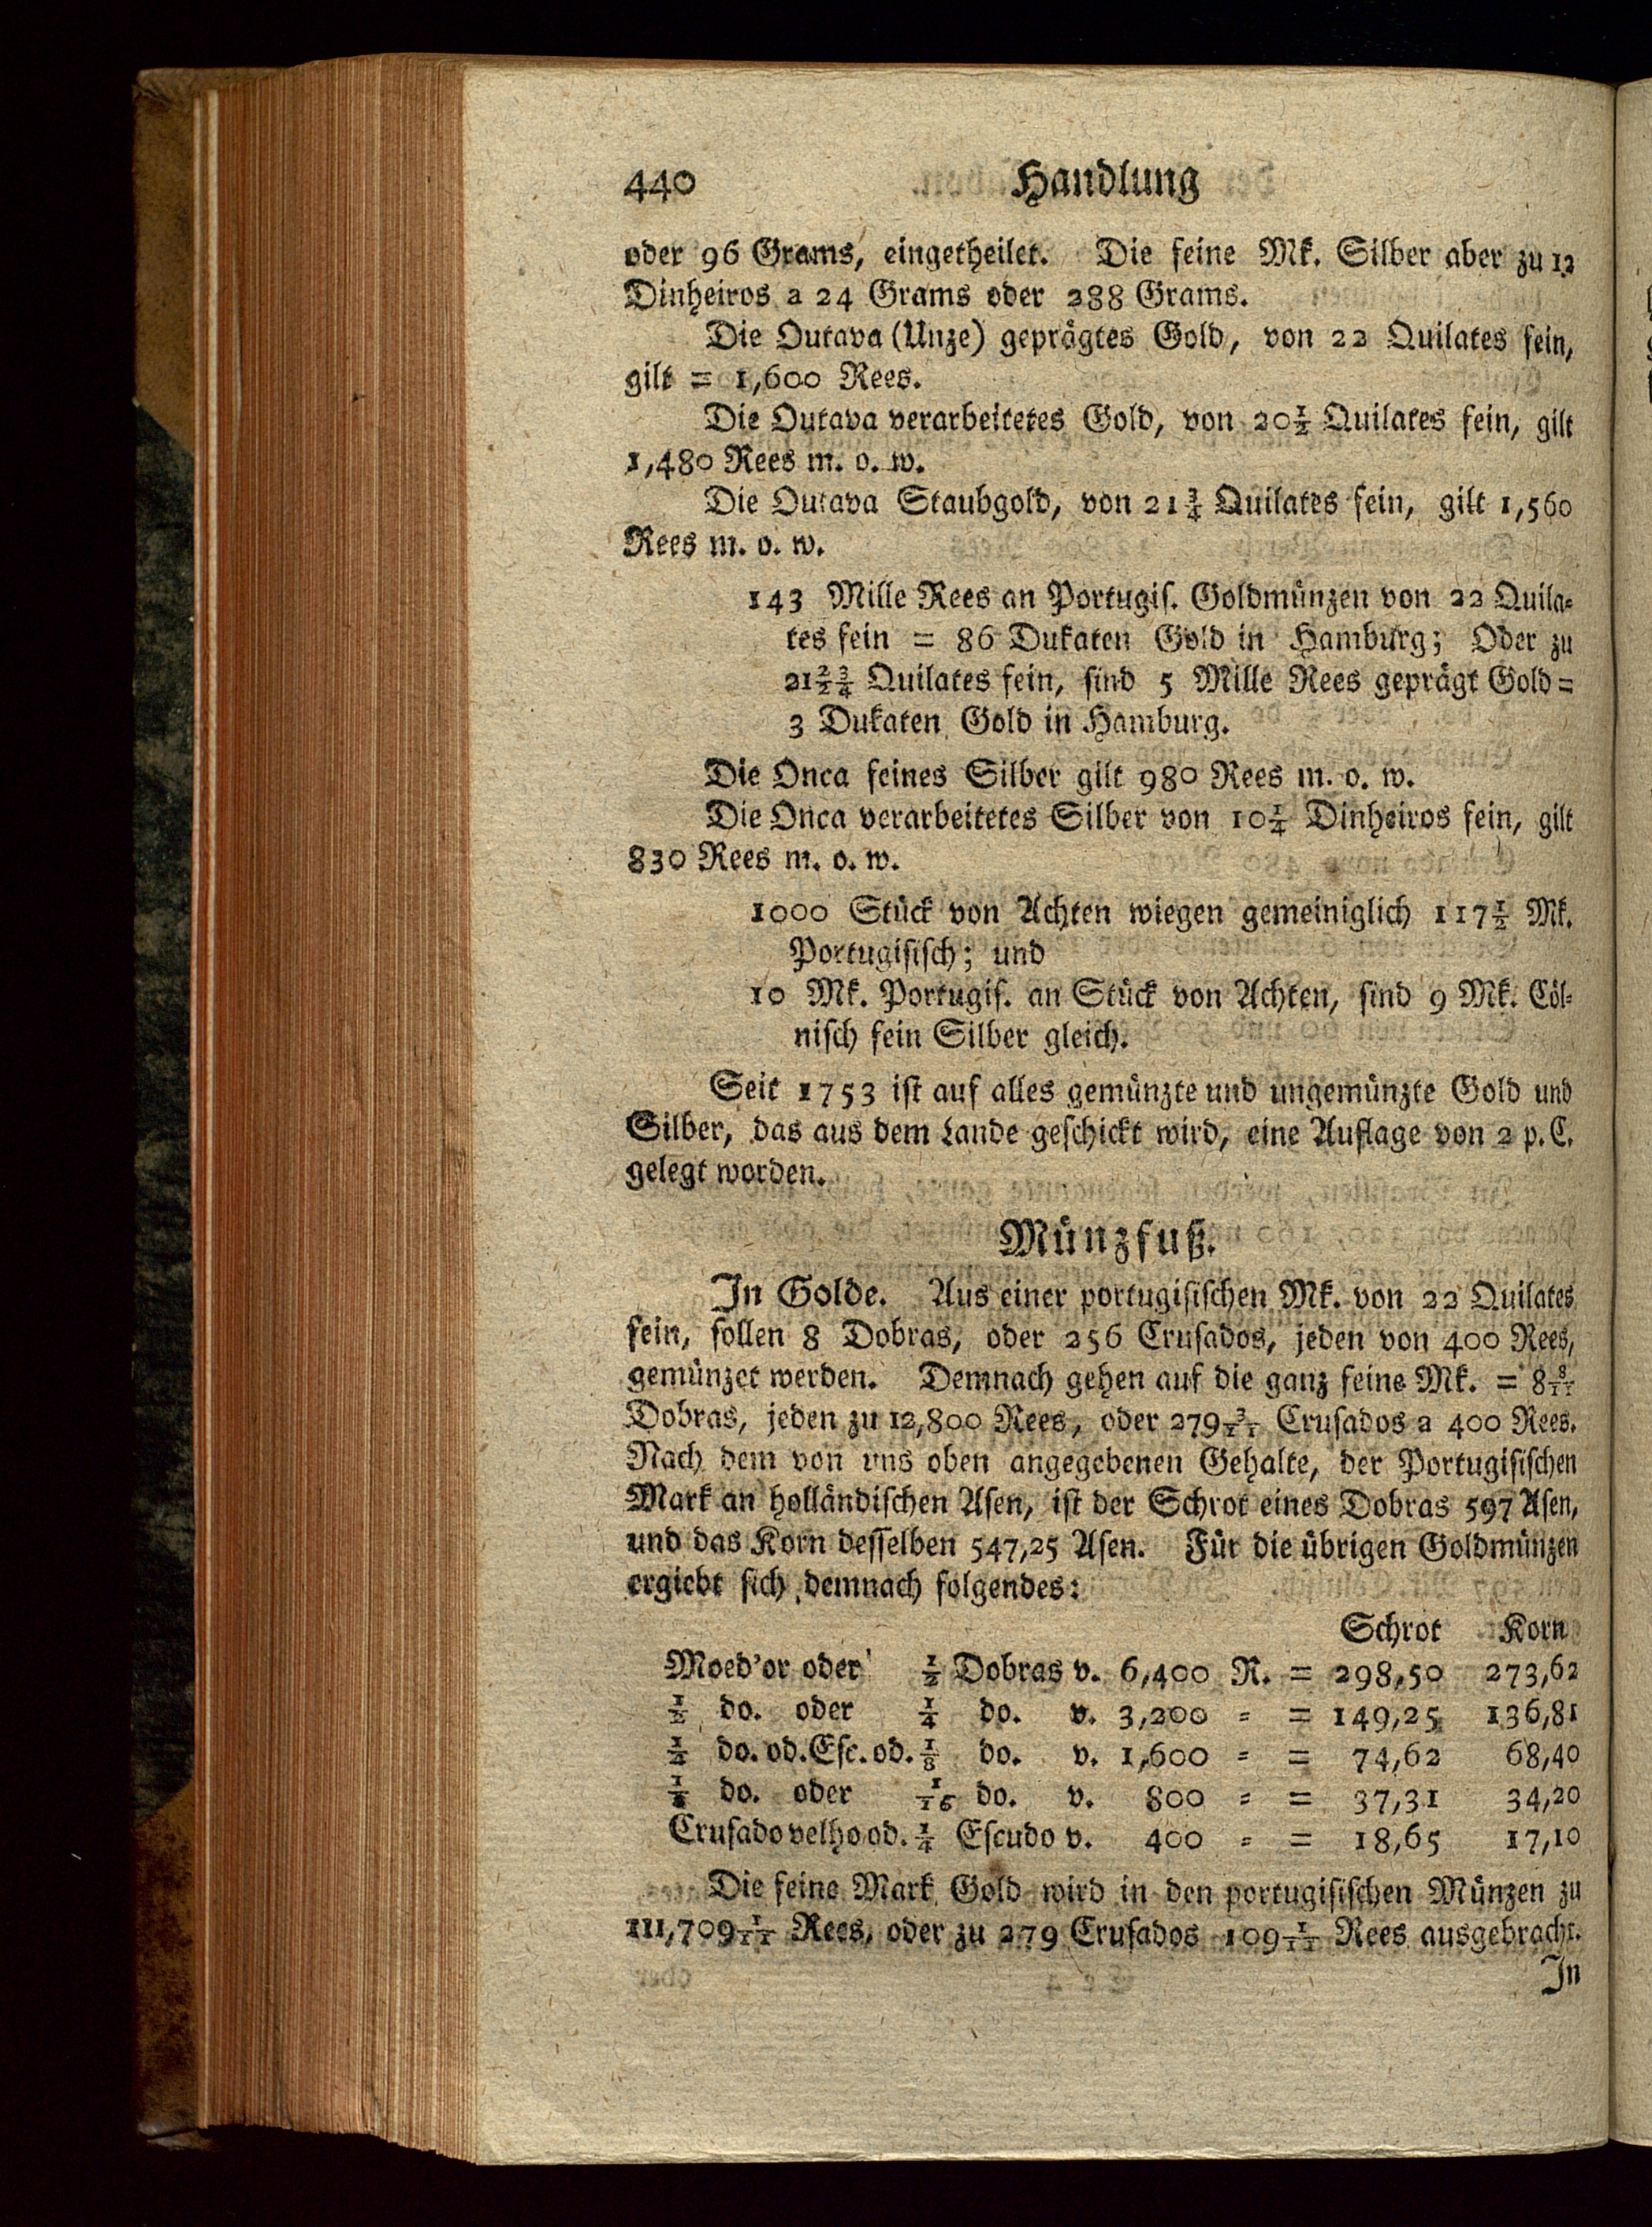 440 Handlung
oder 96 Grams, eingetheilet. Die feine Mk. Silber aber zu 12
Dinheiros a 24 Grams oder 288 Grams.
Die Outava (Unze) geprägtes Gold, von 22 Quilates fein,
gilt = 1,600 Rees.
Die Outava verarbeitetes Gold, von 20½ Quilates fein, gilt
1,480 Rees m. o. w.
Die Outava Staubgold, von 21¾ Quilates fein, gilt 1,560
Rees m. o. w.
143 Mille Rees an Portugis. Goldmünzen von 22 Quila-
tes fein = 86 Dukaten Gold in Hamburg; Oder zu
21 2/2 3/4 Quilates fein, sind 5 Mille Rees geprägt Gold =
3 Dukaten Gold in Hamburg.
Die Onca feines Silber gilt 980 Rees m. o. w.
Die Onca verarbeitetes Silber von 10¼ Dinheiros fein, gilt
830 Rees m. o. w.
1000 Stück von Achten wiegen gemeiniglich 117½ Mk.
Portugisisch; und
10 Mk. Portugis. an Stück von Achten, sind 9 Mk. Cöl-
nisch fein Silber gleich.
Seit 1753 ist auf alles gemünzte und ungemünzte Gold und
Silber, das aus dem Lande geschickt wird, eine Auflage von 2 p. C.
gelegt worden.
Münzfuß.
In Golde. Aus einer portugisischen Mk. von 22 Quilates
fein, sollen 8 Dobras, oder 256 Crusados, jeden von 400 Rees,
gemünzet werden. Demnach gehen auf die ganz feine Mk. = 8 8/11
Dobras, jeden zu 12,800 Rees, oder 279 3/11 Crusados a 400 Rees.
Nach dem von uns oben angegebenen Gehalte, der Portugisischen
Mark an holländischen Asen, ist der Schrot eines Dobras 597 Asen,
und das Korn desselben 547,25 Asen. Für die übrigen Goldmünzen
ergiebt sich demnach folgendes:
Schrot Korn
Moed'or oder ½ Dobras v. 6,400 R. = 298,50 273,62
½ do. oder ¼ do. v. 3,200 = = 149,25 136,81
¼ do. od. Esc. od. ⅛ do. v. 1,600 = = 74,62 68,40
⅛ do. oder 1/16 do. v. 800 = = 37,31 34,20
Crusado velho od. ¼ Escudo v. 400 = = 18,65 17,10
Die feine Mark Gold wird in den portugisischen Münzen zu
111,709 1/11 Rees, oder zu 279 Crusados 109 1/11 Rees ausgebracht.
In